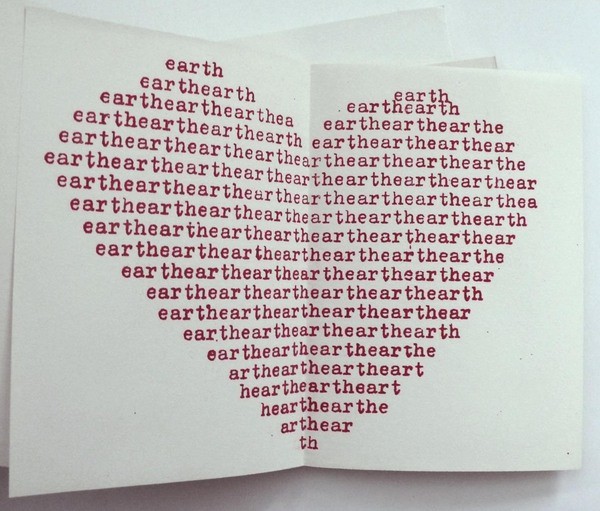 earth earth
earthearth earthearth
earthearthearthea earthearthearthe
earthearthearthearthearthearthearthear
earthearthearthearthearthearthearthearthe
earthearthearthearthearthearthearthearthear
earthearthearthearthearthearthearthearthea
earthearthearthearthearthearthearthearth
earthearthearthearthearthearthearthear
earthearthearthearthearthearthearthe
earthearthearthearthearthearthear
earthearthearthearthearthearth
earthearthearthearthearthear
earthearthearthearthearth
earthearthearthearthe
artheartheartheart
heartheartheart
hearthearthe
arthear
th